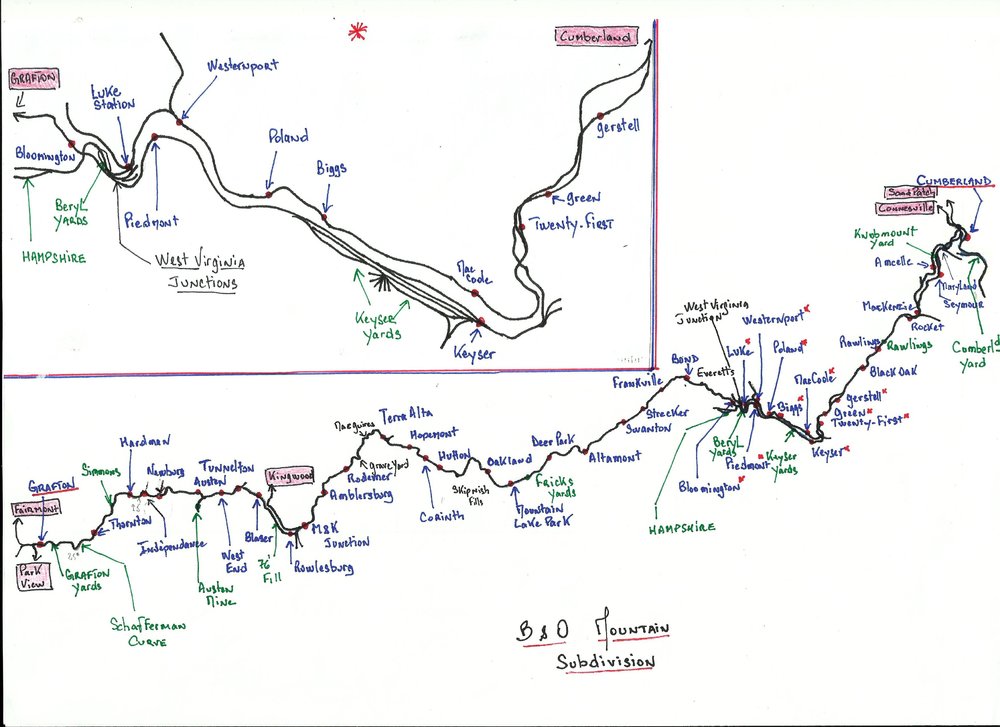 Cumberland
GRAFION
Westernport
Luke
Station
gerstell
Bloomington
Poland
Biggs
green
Beryl
Yards
Piedmont
Twenty-First
HAMPSHIRE
West Virginia
Junctions
Mac
Coole
Keyser
Yards
Keyser
CUMBERLAND
Sand Patch
Connesville
Knobmount
Yard
Amcelle
Maryland
Seymour
MacKenzie
Rocket
Cumberld
Yard
West Virginia
Junction
Westernport
Rawlings
Rawlings
Luke
Poland
Black Oak
BOND
Everetts
MacCoole
Frankville
gerstell
Biggs
Green
Twenty-First
Strecker
Swanton
Beryl
Yards
Piedmont
Keyser
Yards
Keyser
Bloomington
HAMPSHIRE
Terra Alta
Macguires
Hopemont
Deer Park
Altamont
Hutton
Oakland
graveyard
Rodemer
Skipnish
Fills
Fricks
Yards
Hardman
Simmons
Newburg
Tunnelton
Austen
Kingwood
Amblersburg
Corinth
Mountain
Lake Park
GRAFTON
Fairmont
Thornton
Independance
Blaser
M&K
Junction
West
End
76'
Fill
Rowlesburg
Park
View
GRAFION
Yards
Austen
Mine
Schafferman
Curve
B & O Mountain
Subdivision